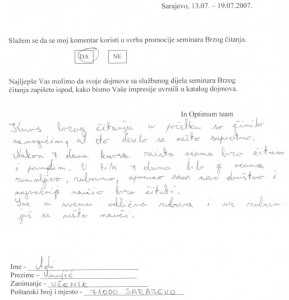 Sarajevo, 13.07. – 19.07.2007.
Slažem se da se moj komentar koristi u svrhu promocije seminara Brzog čitanja.
DA NE
Najljepše Vas molimo da svoje dojmove sa službenog dijela seminara Brzog
čitanja zapišete ispod, kako bismo Vaše impresije uvrstili u katalog dojmova.
In Optimum team
Kurs brzog čitanja u početku se činilo
nemogućim, al to desilo se nešto suprotno.
Nakon dana kursa zaista veoma brzo čitam
i pamtim. U tih dana bilo je veoma
zanimljivo, zabavno, upoznao sam novo društvo i
najvažnije naučio brzo čitati.
Sve u svemu odlična zabava i uz zabavu
još se nešto nauči.
Ime -
Prezime -
Zanimanje - UČENIK
Poštanski broj i mjesto - 71000 SARAJEVO